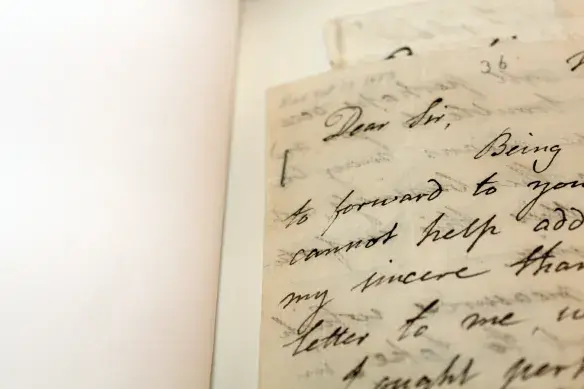 36
Dear Sir,
Being
to forward to you
cannot help add
my sincere than
letter to me, w
I ought per